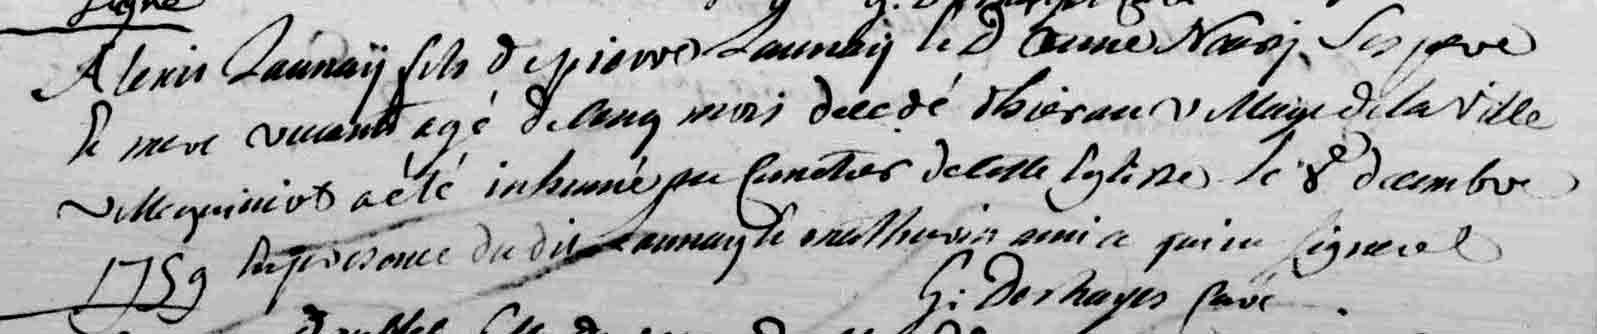 Alexis Launaÿ fils de pierre Launaÿ & d'anne Noury ses pere
& mere vivants agé de cinq mois decedé d'hier au village de la ville
villequiniot a été inhumé au cimetier de cette Eglise le 8e decembre
1759 En presence du dit Launay & mathurin qui ne signent
G: Deshayes curé